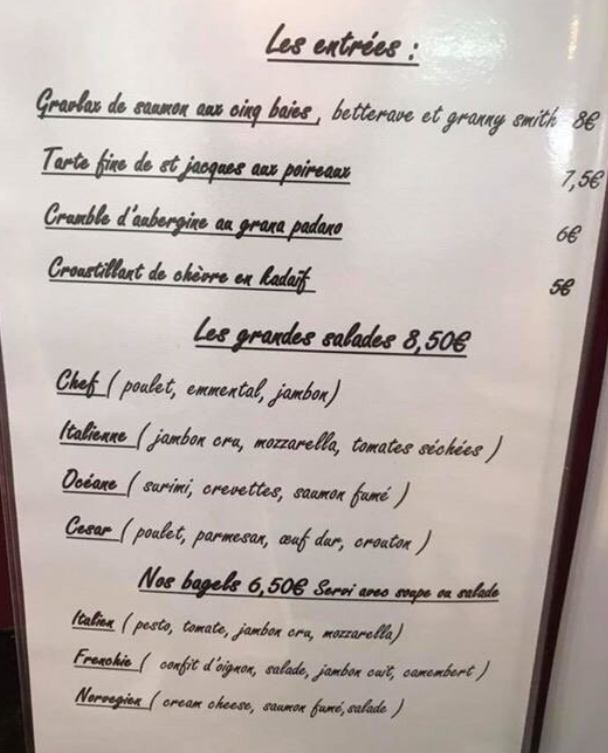 Les entrées :
Gravlax de saumon aux cinq baies, betterave et granny smith 8€
Tarte fine de st jacques aux poireaux 7,5€
Crumble d'aubergine au grana padano 6€
Croustillant de chèvre en kadaïf 5€
Les grandes salades 8,50€
Chef ( poulet, emmental, jambon)
Italienne ( jambon cru, mozzarella, tomates séchées )
Océane ( surimi, crevettes, saumon fumé )
Cesar ( poulet, parmesan, œuf dur, crouton )
Nos bagels 6,50€ Servi avec soupe ou salade
Italien ( pesto, tomate, jambon cru, mozzarella)
Frenchie ( confit d'oignon, salade, jambon cuit, camembert )
Norvegien ( cream cheese, saumon fumé, salade )